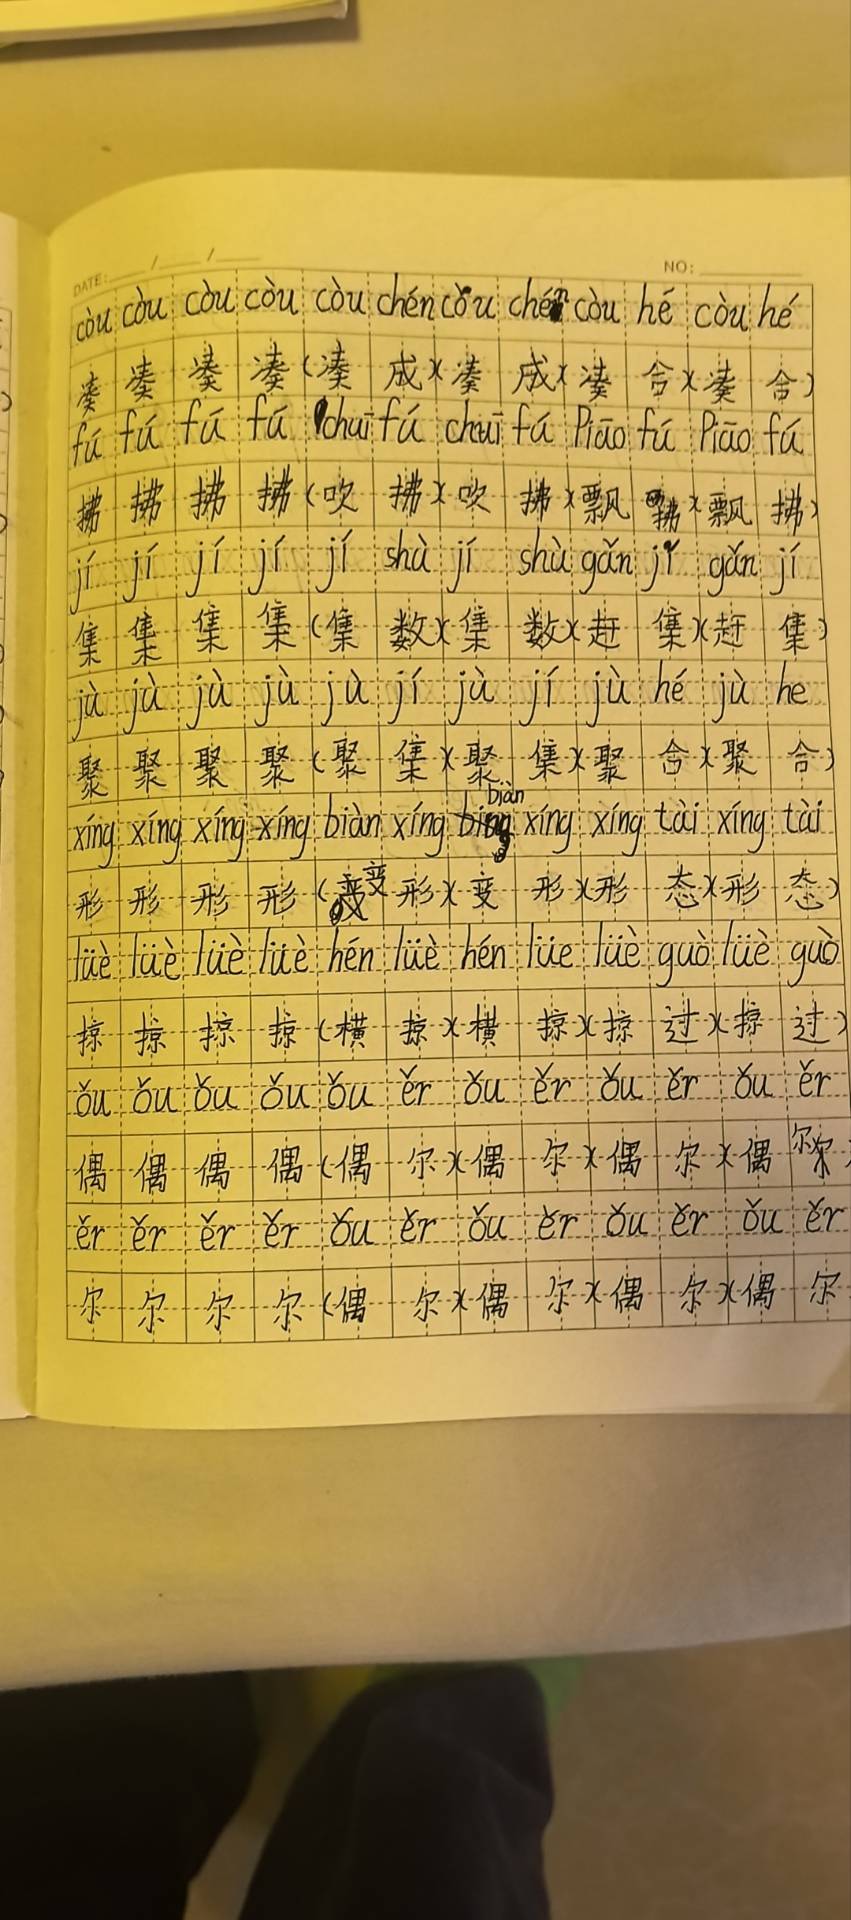 DATE: / /
NO:
còu còu còu còu còu chén còu chén còu hé còu hé
凑 凑 凑 凑 (凑 成)(凑 成)(凑 合)(凑 合)
fú fú fú fú chuī fú chuī fú Piāo fú Piāo fú
拂 拂 拂 拂 (吹 拂)(吹 拂)(飘 拂)(飘 拂)
jí jí jí jí jí shù jí shù gǎn jí gǎn jí
集 集 集 集 (集 数)(集 数)(赶 集)(赶 集)
jù jù jù jù jù jí jù jí jù hé jù he
聚 聚 聚 聚 (聚 集)(聚 集)(聚 合)(聚 合)
xíng xíng xíng xíng biàn xíng biàn xíng xíng tài xíng tài
形 形 形 形 (变 形)(变 形)(形 态)(形 态)
lüè lüè lüè lüè hén lüè hén lüe lüè guò lüè guò
掠 掠 掠 掠 (横 掠)(横 掠)(掠 过)(掠 过)
ǒu ǒu ǒu ǒu ǒu ěr ǒu ěr ǒu ěr ǒu ěr
偶 偶 偶 偶 (偶 尔)(偶 尔)(偶 尔)(偶 尔)
ěr ěr ěr ěr ǒu ěr ǒu ěr ǒu ěr ǒu ěr
尔 尔 尔 尔 (偶 尔)(偶 尔)(偶 尔)(偶 尔